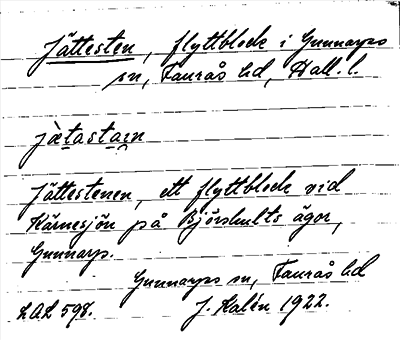 Jättesten, flyttblock i Gunnarps
sn, Faurås hd, Hall. l.
jætastaın
Jättestenen, ett flyttblock vid
Kärnesjön på Björshults ägor,
Gunnarp.
Gunnarps sn, Faurås hd
LAL 598. J. Kalén 1922.